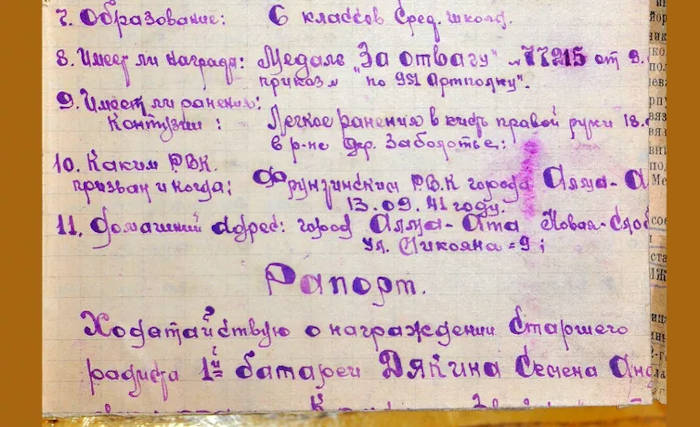 7. Образование: 6 классов Сред. школы.
8. Имеет ли награды: Медаль "За отвагу" № 77215 от 9.
приказ № "по 991 Артполку".
9. Имеет ли ранения:
Контузии: Легкое ранения в кисть правой руки 18.
в р-не дер. Заболотье:
10. Каким РВК.
призван и когда; Фрунзинским РВК города Алма-А
13.09.41 году.
11. Домашний Адрес: город Алма-Ата Новая-Слоб
Ул. Микояна=9;
Рапорт.
Ходотайствую о награждении Старшего
радиста 1й батареи Дякина Семена Анд